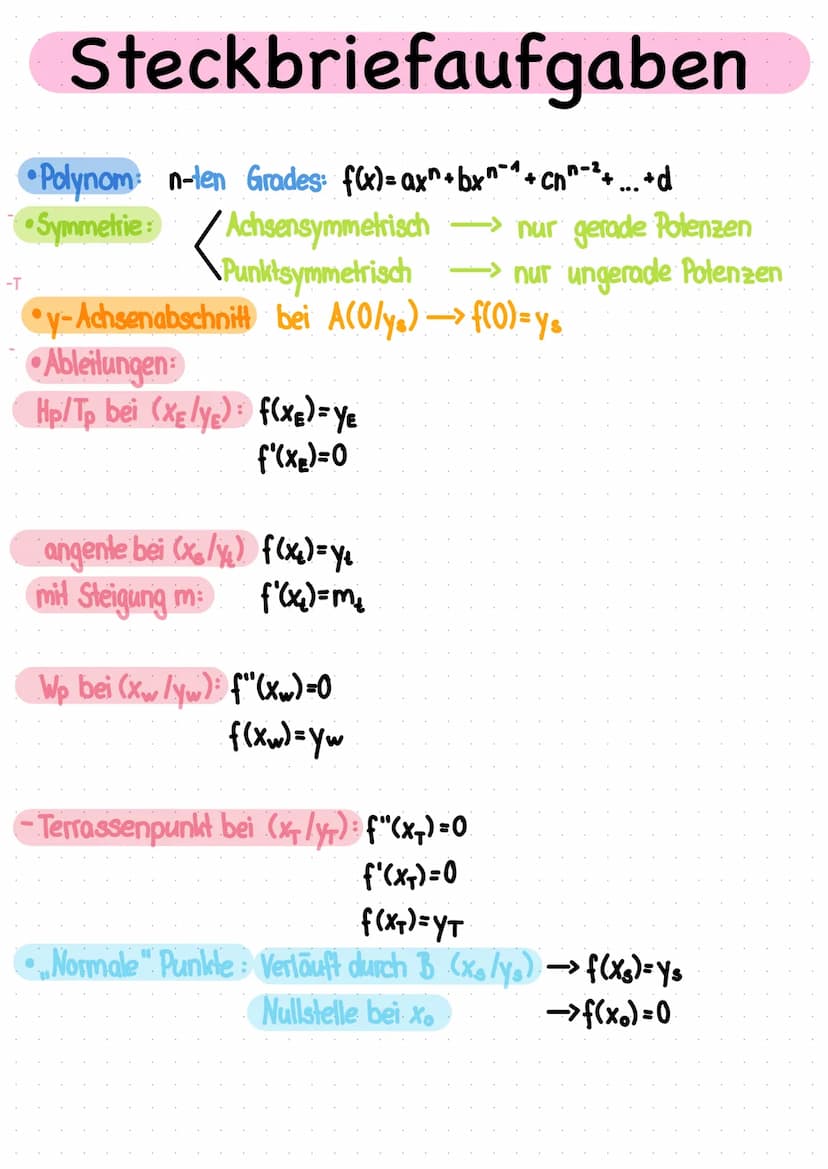 Steckbriefaufgaben
• Polynom: n-ten Grades: f(x)=axⁿ+bxⁿ⁻¹+cnⁿ⁻²+...+d
• Symmetrie: Achsensymmetrisch → nur gerade Potenzen
Punktsymmetrisch → nur ungerade Potenzen
-T
• y-Achsenabschnitt bei A(0/yₛ) → f(0)=yₛ
• Ableitungen:
Hp/Tp bei (x_E/y_E): f(x_E)=y_E
f'(x_E)=0
angente bei (xₛ/yₜ) f(xₜ)=yₜ
mit Steigung m: f'(xₜ)=mₜ
Wp bei (x_w/y_w): f''(x_w)=0
f(x_w)=y_w
- Terrassenpunkt bei (x_T/y_T): f''(x_T)=0
f'(x_T)=0
f(x_T)=y_T
• „Normale" Punkte: Verläuft durch B (xₛ/yₛ) → f(xₛ)=yₛ
Nullstelle bei x₀ → f(x₀)=0